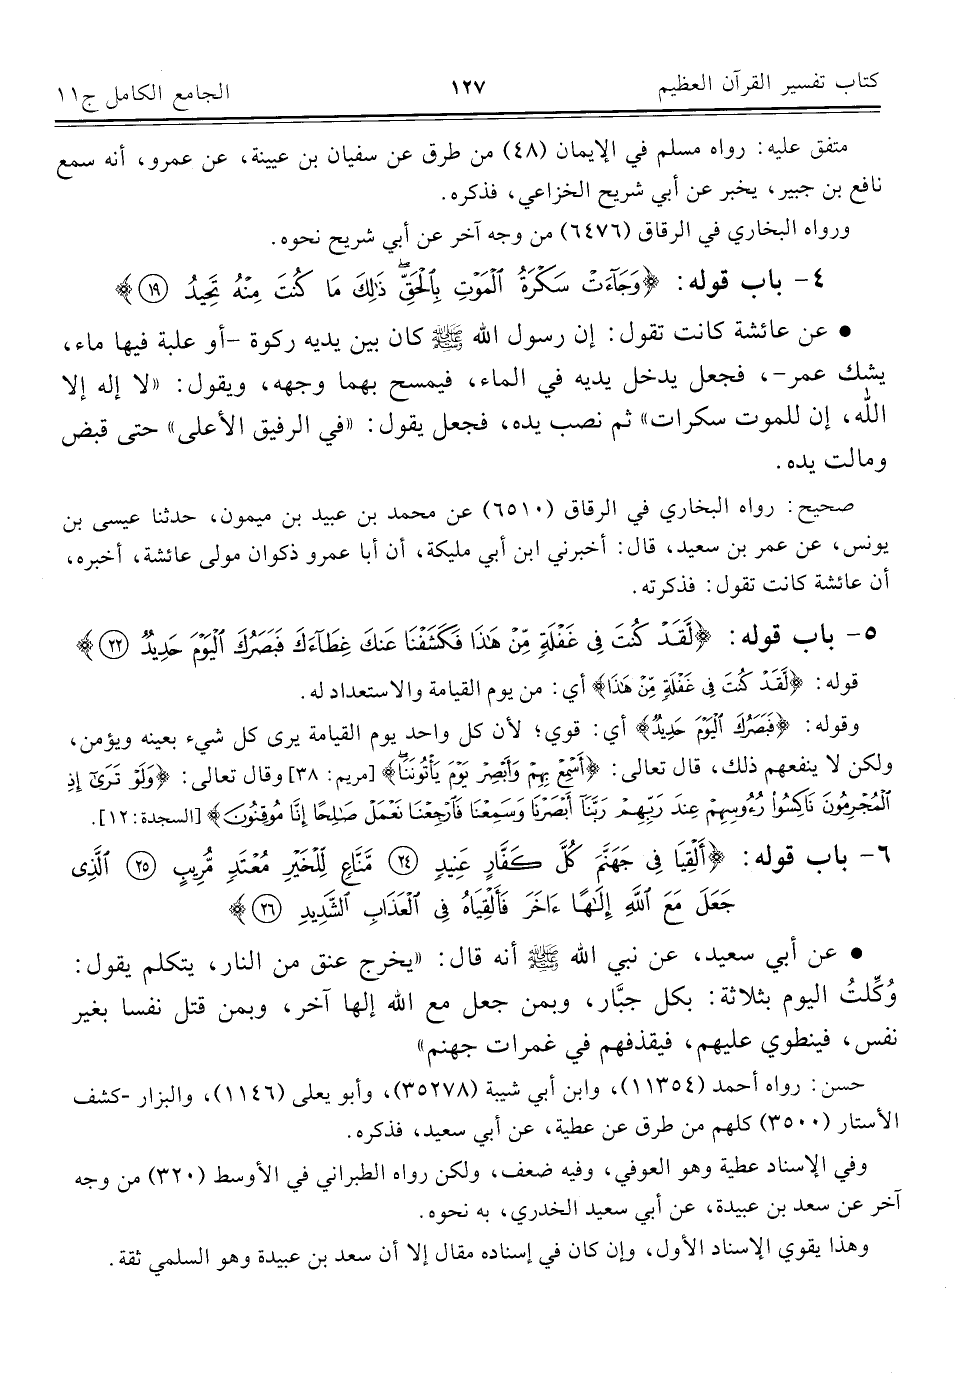 كتاب تفسير القرآن العظيم ١٢٧ الجامع الكامل ج١١
متفق عليه: رواه مسلم في الإيمان (٤٨) من طرق عن سفيان بن عيينة، عن عمرو، أنه سمع
نافع بن جبير، يخبر عن أبي شريح الخزاعي، فذكره.
ورواه البخاري في الرقاق (٦٤٧٦) من وجه آخر عن أبي شريح نحوه.
٤- باب قوله: ﴿وَجَآءَتْ سَكْرَةُ ٱلْمَوْتِ بِٱلْحَقِّ ۖ ذَٰلِكَ مَا كُنتَ مِنْهُ تَحِيدُ ١٩﴾
• عن عائشة كانت تقول: إن رسول الله ﷺ كان بين يديه ركوة -أو علبة فيها ماء،
يشك عمر-، فجعل يدخل يديه في الماء، فيمسح بهما وجهه، ويقول: «لا إله إلا
الله، إن للموت سكرات» ثم نصب يده، فجعل يقول: «في الرفيق الأعلى» حتى قبض
ومالت يده.
صحيح: رواه البخاري في الرقاق (٦٥١٠) عن محمد بن عبيد بن ميمون، حدثنا عيسى بن
يونس، عن عمر بن سعيد، قال: أخبرني ابن أبي مليكة، أن أبا عمرو ذكوان مولى عائشة، أخبره،
أن عائشة كانت تقول: فذكرته.
٥- باب قوله: ﴿لَّقَدْ كُنتَ فِى غَفْلَةٍ مِّنْ هَٰذَا فَكَشَفْنَا عَنكَ غِطَآءَكَ فَبَصَرُكَ ٱلْيَوْمَ حَدِيدٌ ٢٢﴾
قوله: ﴿لَّقَدْ كُنتَ فِى غَفْلَةٍ مِّنْ هَٰذَا﴾ أي: من يوم القيامة والاستعداد له.
وقوله: ﴿فَبَصَرُكَ ٱلْيَوْمَ حَدِيدٌ﴾ أي: قوي؛ لأن كل واحد يوم القيامة يرى كل شيء بعينه ويؤمن،
ولكن لا ينفعهم ذلك، قال تعالى: ﴿أَسْمِعْ بِهِمْ وَأَبْصِرْ يَوْمَ يَأْتُونَنَا ۖ﴾ [مريم: ٣٨] وقال تعالى: ﴿وَلَوْ تَرَىٰٓ إِذِ
ٱلْمُجْرِمُونَ نَاكِسُوا۟ رُءُوسِهِمْ عِندَ رَبِّهِمْ رَبَّنَآ أَبْصَرْنَا وَسَمِعْنَا فَٱرْجِعْنَا نَعْمَلْ صَٰلِحًا إِنَّا مُوقِنُونَ﴾ [السجدة: ١٢].
٦- باب قوله: ﴿أَلْقِيَا فِى جَهَنَّمَ كُلَّ كَفَّارٍ عَنِيدٍ ٢٤ مَّنَّاعٍ لِّلْخَيْرِ مُعْتَدٍ مُّرِيبٍ ٢٥ ٱلَّذِى
جَعَلَ مَعَ ٱللَّهِ إِلَٰهًا ءَاخَرَ فَأَلْقِيَاهُ فِى ٱلْعَذَابِ ٱلشَّدِيدِ ٢٦﴾
• عن أبي سعيد، عن نبي الله ﷺ أنه قال: «يخرج عنق من النار، يتكلم يقول:
وُكِّلتُ اليوم بثلاثة: بكل جبَّار، وبمن جعل مع الله إلها آخر، وبمن قتل نفسا بغير
نفس، فينطوي عليهم، فيقذفهم في غمرات جهنم»
حسن: رواه أحمد (١١٣٥٤)، وابن أبي شيبة (٣٥٢٧٨)، وأبو يعلى (١١٤٦)، والبزار -كشف
الأستار (٣٥٠٠) كلهم من طرق عن عطية، عن أبي سعيد، فذكره.
وفي الإسناد عطية وهو العوفي، وفيه ضعف، ولكن رواه الطبراني في الأوسط (٣٢٠) من وجه
آخر عن سعد بن عبيدة، عن أبي سعيد الخدري، به نحوه.
وهذا يقوي الإسناد الأول، وإن كان في إسناده مقال إلا أن سعد بن عبيدة وهو السلمي ثقة.